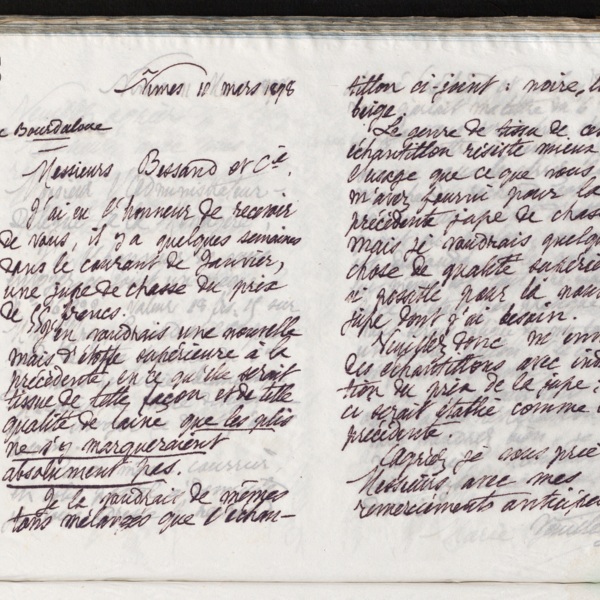 Nîmes 10 mars 1898
Bourdaloue
Messieurs Bessand et Cie.
J'ai eu l'honneur de recevoir
de vous, il y a quelques semaines
dans le courant de Janvier,
une jupe de chasse du prix
de francs.
J'en voudrais une nouvelle
mais d'étoffe supérieure à la
précédente, en ce qu'elle serait
tissue de telle façon et de telle
qualité de laine que les plis
ne s'y marqueraient
absolument pas.
Je la voudrais de mêmes
tons mélangés que l'échan-
tillon ci-joint : noire,
beige.
Le genre de tissu de
échantillon résiste mieux
l'usage que ce que vous
m'avez fourni pour la
précédente jupe de chas
mais je voudrais quelq
chose de qualité supérie
si possible pour la nou
jupe dont j'ai besoin.
Veuillez donc me env
des échantillons avec ind
tion du prix de la jupe :
ci serait établie comme
précédente
Agréez je vous prie
Messieurs avec mes
remerciements anticipé
Marie